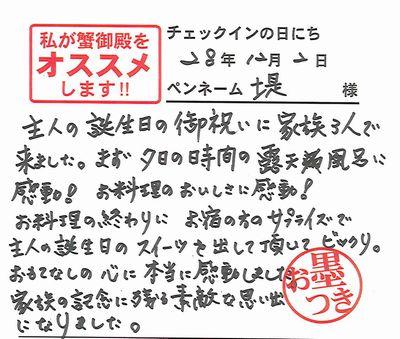 私が蟹御殿を
オススメ
します!!
チェックインの日にち
28年12月2日
ペンネーム 堤 様
主人の誕生日の御祝いに家族3人で
来ました。まず夕日の日時間の露天風呂に
感動! お料理のおいしさに感動!
お料理の終わりに お宿の方のサプライズで
主人の誕生日のスイーツを出して頂いてビックリ。
おもてなしの心に本当に感動しました
家族の記念に残る素敵な思い出
になりました。
お墨つき